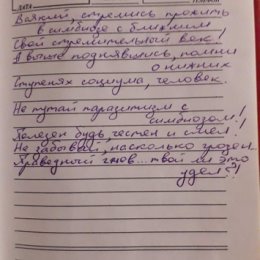 ДАТА
Всякий, стремись прожить
в симбиозе с ближним
Свой стремительный век!
А выше поднявшись, помни
о нижних
Ступенях социума, человек.
Не путай паразитизм с
симбиозом!
Полезен будь, честен и смел!
Не забывай, насколько грозен
Праведный гнев... твой ли это
удел?!